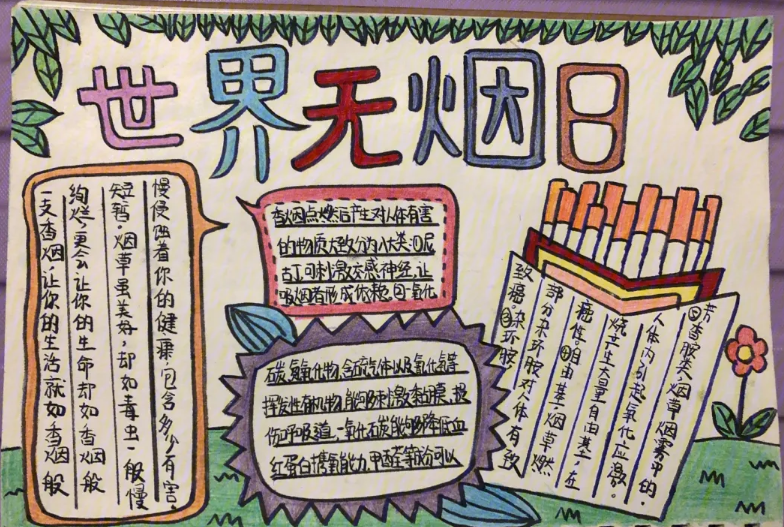 世界无烟日
一支香烟,让你的生活就如香烟般
绚烂,更会让你的生命却如香烟般
短暂。烟草虽美好,却如毒虫一般慢
慢侵蚀着你的健康。包含多少有害。
香烟点燃后产生对人体有害
的物质大致分为八大类:①尼
古丁,可刺激交感神经,让
吸烟者形成依赖。②氧化
碳、氰氧化物,含硫气体以及氧化氮等
挥发性有机物,能够刺激黏膜,损
伤呼吸道。一氧化碳能够降低血
红蛋白携氧能力,甲醛等成分可以
致癌。③杂环胺,
部分杂环胺对人体有致
癌性。④自由基,烟草燃
烧产生大量自由基,在
人体内引起氧化应激。
芳香胺类,烟草烟雾中的